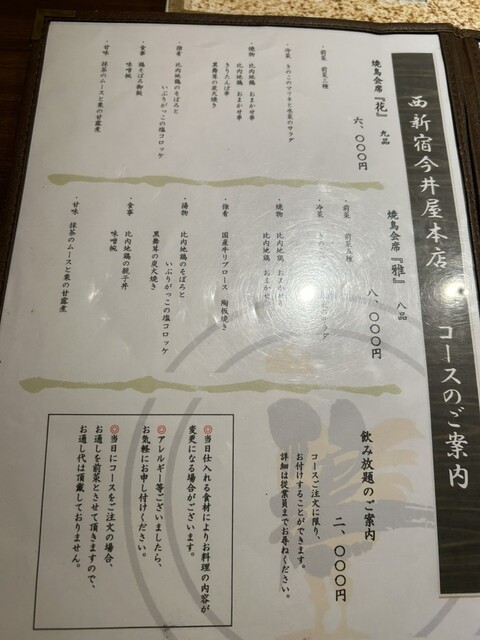 西新宿今井屋本店 コースのご案内
焼鳥会席『花』 九品
六、〇〇〇円
・前菜 前菜三種
・冷菜 きのこのマリネと水菜のサラダ
・焼物 比内地鶏 おまかせ串
比内地鶏 おまかせ串
きりたんぽ串
黒舞茸の炭火焼き
・強肴 比内地鶏のそぼろと
いぶりがっこの塩コロッケ
・食事 鶏そぼろ御飯
味噌椀
・甘味 抹茶のムースと栗の甘露煮
焼鳥会席『雅』 八品
八、〇〇〇円
・前菜 前菜三種
・冷菜 きのこの サラダ
・焼物 比内地鶏 おまかせ串
比内地鶏 おまかせ
・強肴 国産牛リブロース 陶板焼き
・揚物 比内地鶏のそぼろと
いぶりがっこの塩コロッケ
黒舞茸の炭火焼き
・食事 比内地鶏の親子丼
味噌椀
・甘味 抹茶のムースと栗の甘露煮
飲み放題のご案内
二、〇〇〇円
コースご注文に限り、
お付けすることができます。
詳細は従業員までお尋ねください。
◎当日仕入れる食材によりお料理の内容が
変更になる場合がございます。
◎アレルギー等ございましたら、
お気軽にお申し付けください。
◎当日にコースをご注文の場合、
お通しを前菜とさせて頂きますので、
お通し代は頂戴しておりません。